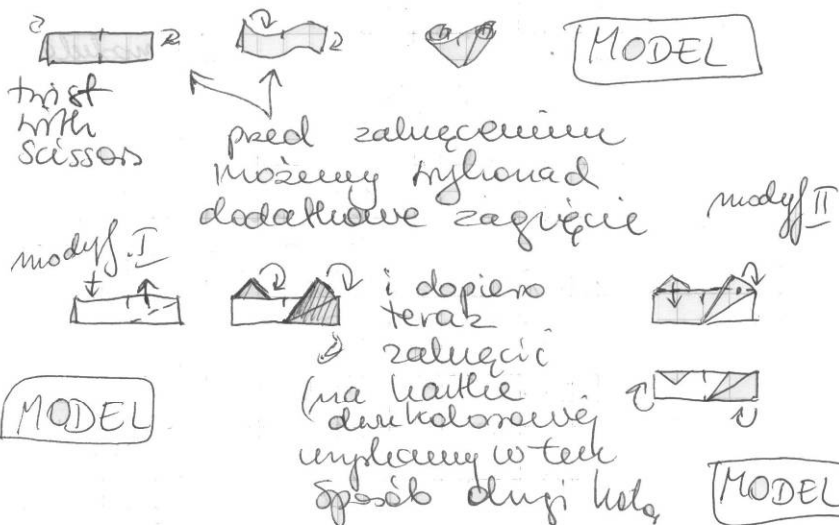 MODEL
twist
with
scissors
przed zakręceniem
możemy wykonać
dodatkowe zagięcie
modyf. I
modyf II
i dopiero
teraz
zakręcić
(na kartce
dwukolorowej
uzyskamy w ten
sposób drugi kolo
MODEL
MODEL